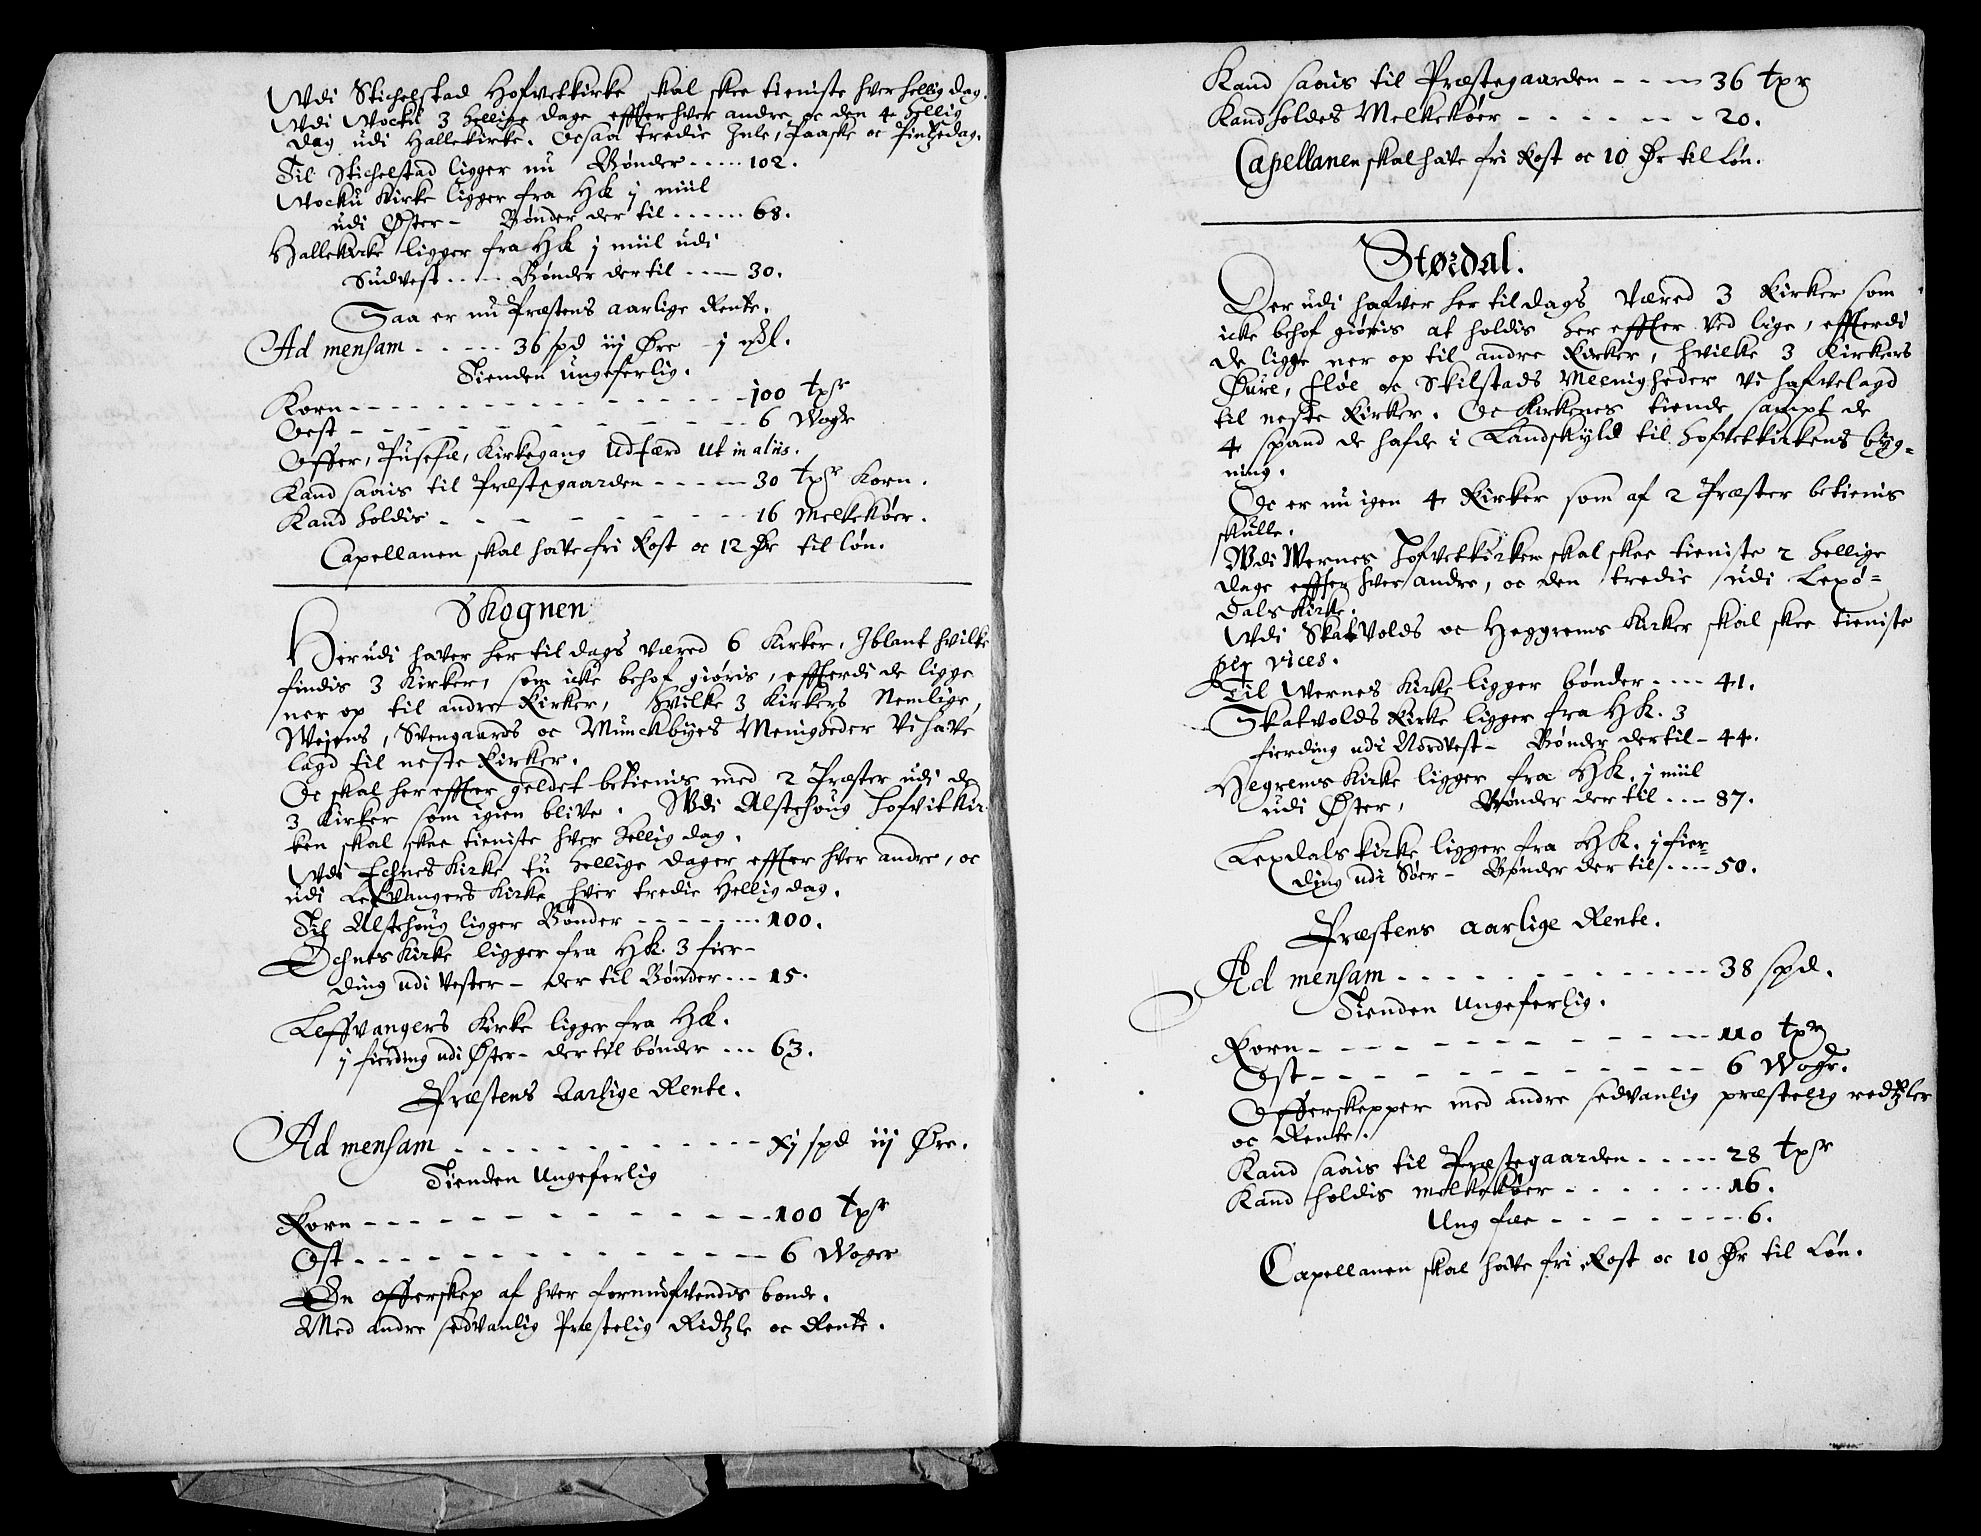 Wdi Stichelstad Hofvetkirke skal skee tieniste hver hellig dag.
Wdi Wocku 3 hellige dage effter hver andre oc den 4 hellig
dag udi Hallekirke. Ocsaa tredie Jule, Paaske oc Pintzedag.
Til Stichelstad ligger nu Bønder - - - - - 102.
Wocku Kirke ligger fra Hk j miil
udi Øster - Bønder der til - - - - - - 68.
Hallekirke ligger fra Hk j miil udi
Sudvest - - - - - Bønder der til - - - 30.
Saa er nu Præstens aarlige Rente.
Ad mensam - - - - - 36 spd iij Øre
Tienden ungeferlig.
Korn - - - - - - - - - - - - 100 tpr
Oest - - - - - - - - - - - - 6 Wogr
Offer, Pusefæ, Kirkegang Udfærd ut in aliis.
Kand saais til Præstegaarden - - - - - 30 tpr Korn.
Kand holdis - - - - - - - - - 16 Melkekøer.
Capellanen skal have fri Kost oc 12 Ør til løn.
Skognen
Herudi haver her til dags været 6 Kirker, Iblant hvilke
findis 3 Kirker, som icke behof giøris, effterdi de ligge
ner op til andre Kirker, Hvilke 3 Kirkers Nemlige,
Wejens, Svengaards oc Munckbyes Menigheder Vi have
lagd til neste Kirker.
Oc skal her effter geldet betienis med 2 Præster udi de
3 Kirker som igien blive. Wdi Alstehoug Hofvitkir
ken skal skee tieniste hver hellig dag.
Wdi Echnes Kirke tu hellige dager effter hver andre, oc
udi Leffvangers Kirke hver tredie Hellig dag.
Til Alstehoug ligger Bønder - - - - - - - 100.
Echnes Kirke ligger fra Hk. 3 fier-
ding udi Vester - der til Bønder - - - 15.
Leffvangers Kirke ligger fra Hk.
j fierding udi Øster - der til bønder - - - 63.
Præstens Aarlige Rente.
Ad mensam - - - - - - - - - - - xj spd iij Øre.
Tienden Ungeferlig
Korn - - - - - - - - - - - - 100 tpr
Ost - - - - - - - - - - - - 6 Woger
En offerskep af hver formufvendis bonde.
Med andre sedvanlig Præstelig Ridtzle oc Rente.
Kand saais til Præstegaarden - - - - 36 tpr
Kand holdes Melkekøer - - - - - - - 20.
Capellanen skal have fri Kost oc 10 Ør til Løn.
Størdal.
Der udi hafver her til dags Været 3 Kirker som
icke behof giøris at holdis her effter Ved lige, effterdi
de ligge ner op til andre Kirker, hvilke 3 Kirkers
Øure, Fløe oc Skilstads Meenigheder Vi hafve lagd
til neste Kirker. Oc Kirkenes tiende, sampt de
4 spand de hafde i Landskyld til Hofvetkirkens byg-
ning.
Oc er nu igen 4 Kirker som af 2 Præster betienis
skulle.
Wdi Wernes Hofvetkirker skal skee tieniste 2 hellige
dage effter hver andre, oc den tredie udi Lexø-
dals Kirke.
Wdi Skatvolds oc Heggrems Kirker skal skee tieniste
per vices.
Til Wernes Kirke ligger bønder - - - - 41.
Skatvolds Kirke ligger fra Hk. 3
fierding udi Nordvest - Bønder dertil - 44.
Hegrems Kirke ligger fra Hk. j miil
udi Øster, Bønder der til - - - 87.
Lexdals kirke ligger fra Hk. j fier-
ding udi Søer - Bønder der til - - - - 50.
Præstens aarlige Rente.
Ad mensam - - - - - - - - - - - 38 spd.
Tienden Ungeferlig.
Korn - - - - - - - - - - - 110 tpr
Ost - - - - - - - - - - - 6 Wogr.
Offerskepper med andre sedvanlig præstelig redtzler
oc Rente.
Kand saais til Præstegaarden - - - - - 28 tpr
Kand holdis melkekøer - - - - - - - 16.
Ung fæe - - - - - - - 6.
Capellanen skal have fri Kost oc 10 Ør til Løn.